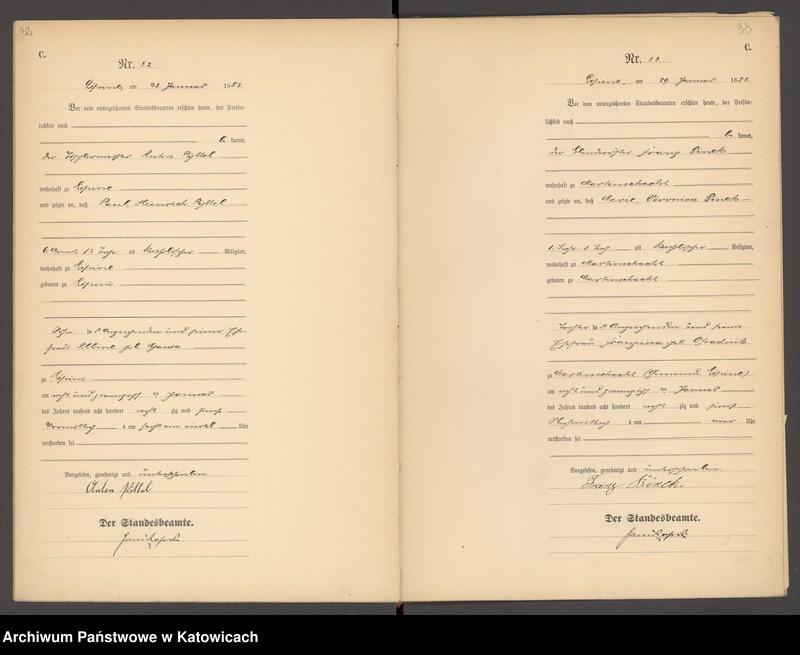 32
C.
Nr. 32
Lipine, am 28. Januar 1885
Vor dem unterzeichneten Standesbeamten erschien heute, der Persön-
lichkeit nach
be kannt,
der Anton Pyttel
wohnhaft zu Lipine
und zeigte an, daß Paul, Heinrich Pyttel
6 Monat 13 Tage alt katholischer Religion,
wohnhaft zu Lipine
geboren zu Lipine
Sohn des Anzeigenden und seiner Ehe-
frau Albine geb
zu Lipine
am acht und zwanzigsten Januar
des Jahres tausend acht hundert acht zig und fünf
Vormittag s um ein viertel Uhr
verstorben sei
Vorgelesen, genehmigt und unterschrieben
Anton Pyttel
Der Standesbeamte.
33
C.
Nr. 33.
Lipine, am 29. Januar 1885.
Vor dem unterzeichneten Standesbeamten erschien heute, der Persön-
lichkeit nach
be kannt,
der Franz Pinck
wohnhaft zu Martinschacht
und zeigte an, daß Marie, Veronica Pinck
1. Jahr 1 Tag alt katholischer Religion,
wohnhaft zu Martinschacht
geboren zu Martinschacht
Tochter des Anzeigenden und seiner
Ehefrau Franziska geb
zu Martinschacht (Gemeinde Lipine)
am acht und zwanzigsten Januar
des Jahres tausend acht hundert acht zig und fünf
Nachmittag s um vier Uhr
verstorben sei
Vorgelesen, genehmigt und unterschrieben.
Franz Pinck.
Der Standesbeamte.
Archiwum Państwowe w Katowicach